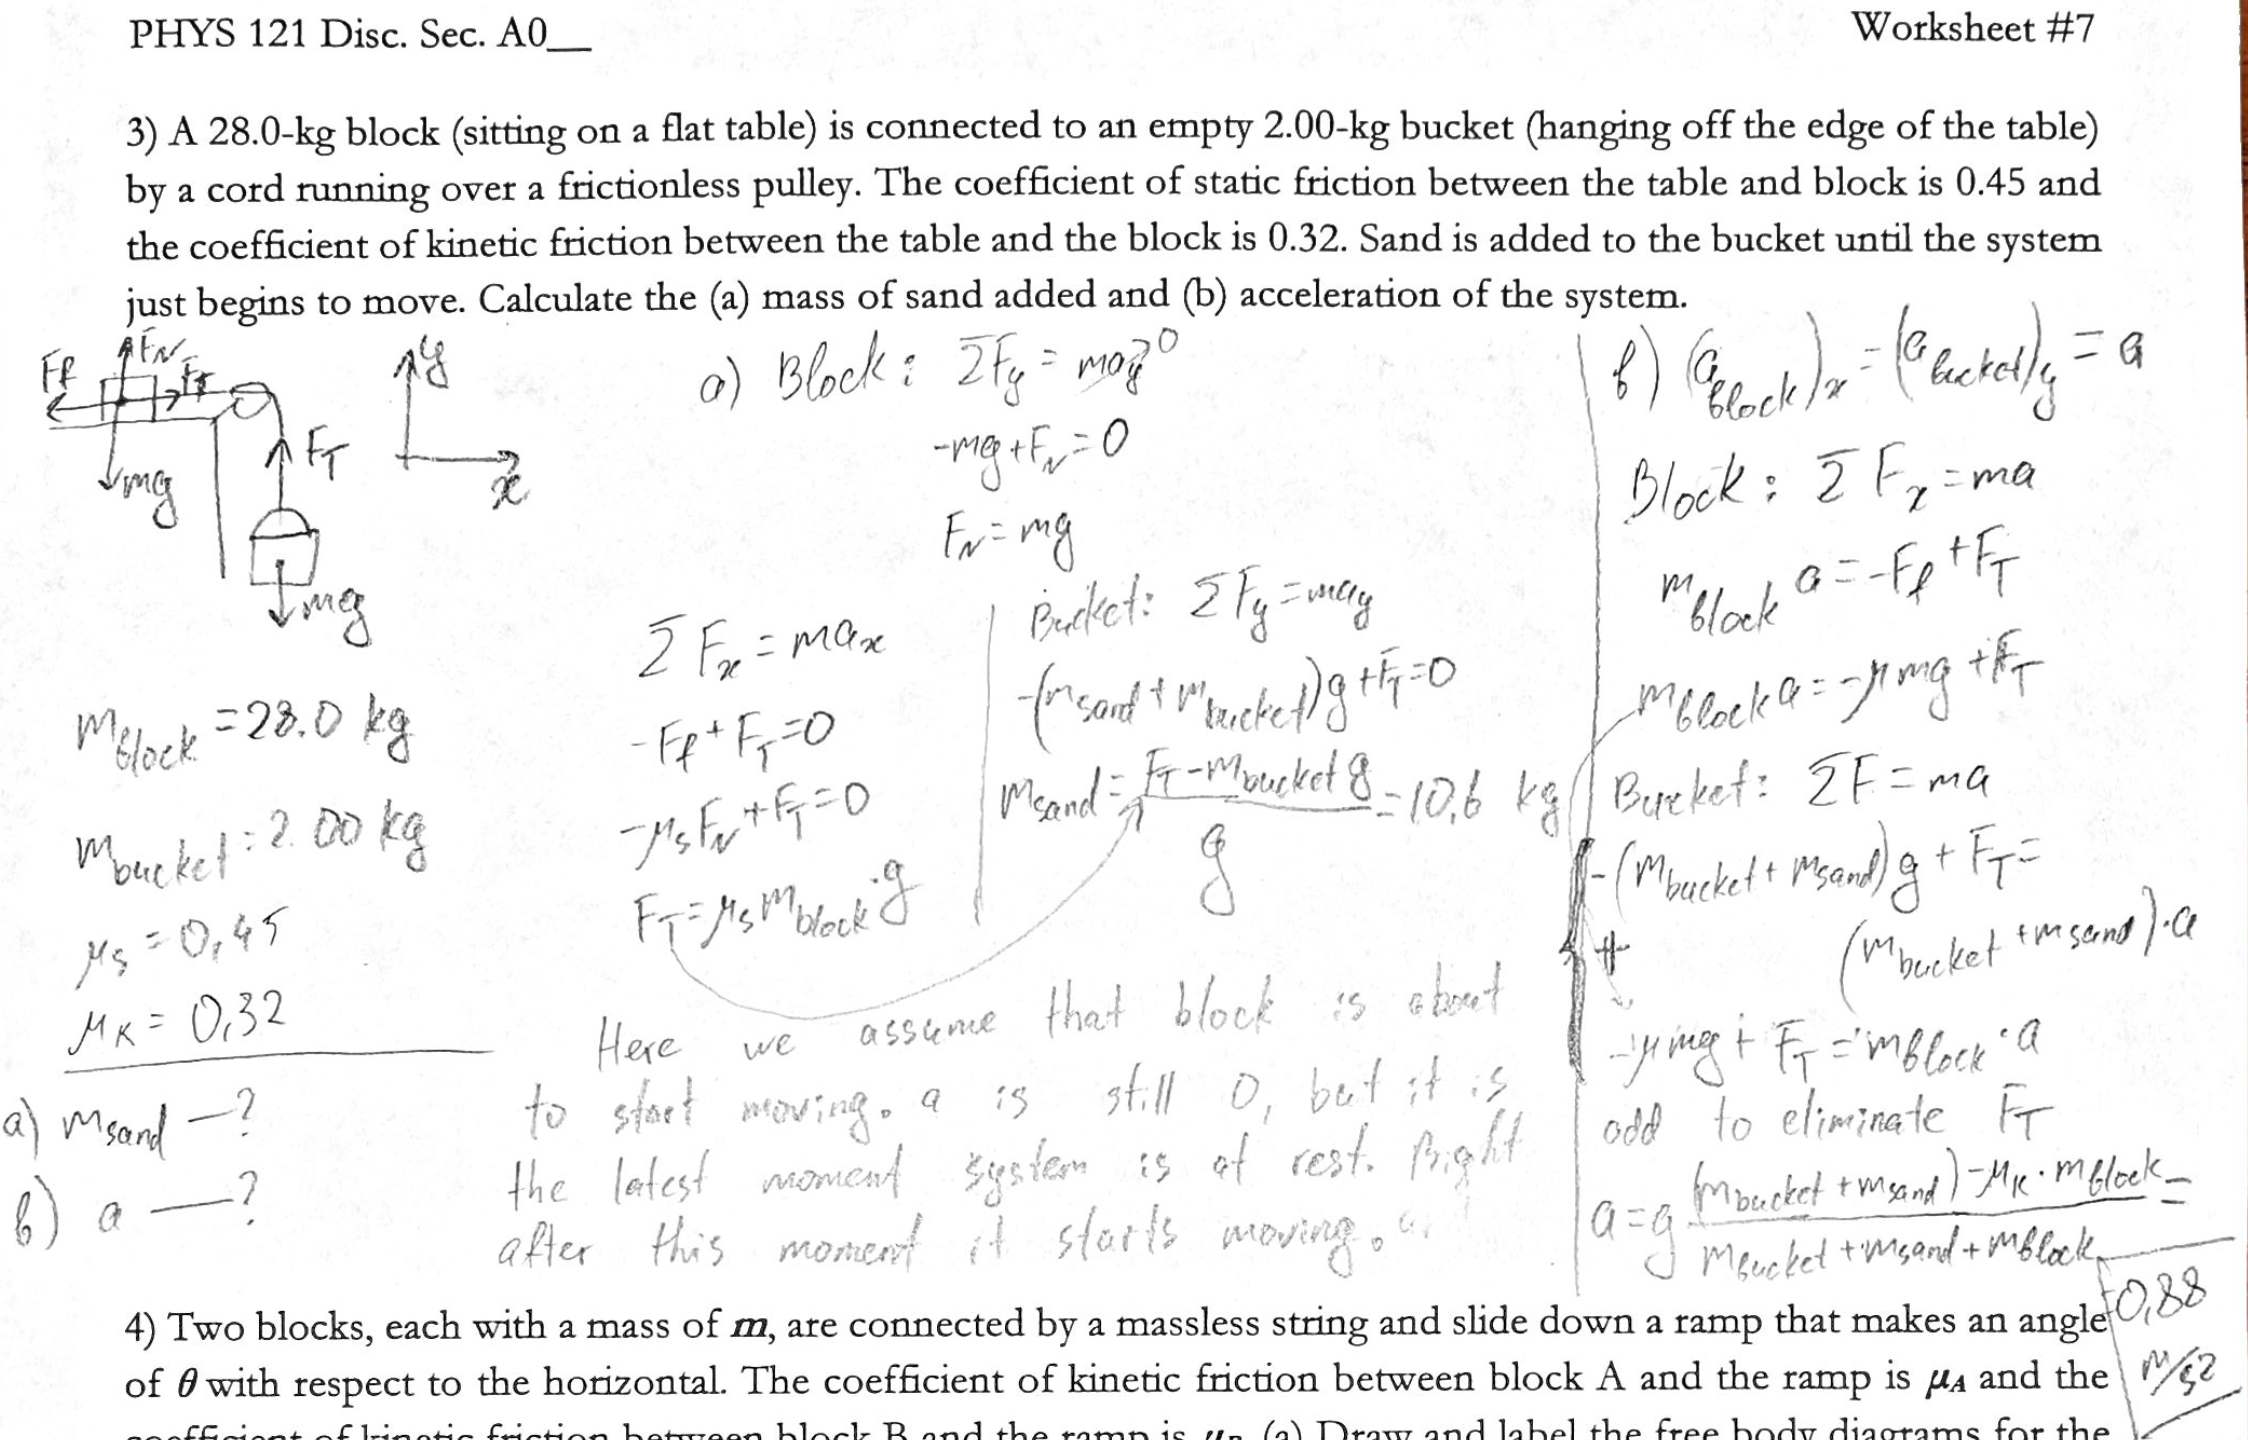 PHYS 121 Disc. Sec. A0__
Worksheet #7
3) A 28.0-kg block (sitting on a flat table) is connected to an empty 2.00-kg bucket (hanging off the edge of the table)
by a cord running over a frictionless pulley. The coefficient of static friction between the table and block is 0.45 and
the coefficient of kinetic friction between the table and the block is 0.32. Sand is added to the bucket until the system
just begins to move. Calculate the (a) mass of sand added and (b) acceleration of the system.
Ff
FN
FT
mg
FT
mg
y
x
m_block = 28.0 kg
m_bucket = 2.00 kg
μs = 0,45
μK = 0,32
a) m_sand — ?
b) a — ?
a) Block: ΣFy = may 0
-mg + FN = 0
FN = mg
ΣFx = max
-Ff + FT = 0
-μs FN + FT = 0
FT = μs m_block · g
Bucket: ΣFy = may
-(m_sand + m_bucket)g + FT = 0
m_sand = (FT - m_bucket g) / g = 10,6 kg
Here we assume that block is about
to start moving. a is still 0, but it is
the latest moment system is at rest. Right
after this moment it starts moving.
b) (a_block)x = (a_bucket)y = a
Block: ΣFx = ma
m_block a = -Ff + FT
m_block a = -μmg + FT
Bucket: ΣF = ma
-(m_bucket + m_sand)g + FT =
(m_bucket + m_sand)·a
+
-μmg + FT = m_block · a
add to eliminate FT
a = g ((m_bucket + m_sand) - μK · m_block) / (m_bucket + m_sand + m_block) =
= 0,88
m/s2
4) Two blocks, each with a mass of m, are connected by a massless string and slide down a ramp that makes an angle
of θ with respect to the horizontal. The coefficient of kinetic friction between block A and the ramp is μA and the
coefficient of kinetic friction between block B and the ramp is μB. (a) Draw and label the free body diagrams for the